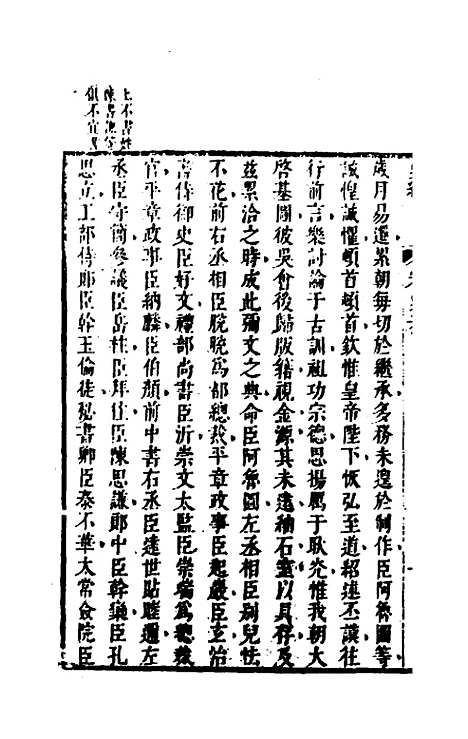 歲月易遷累朝每切於繼承多務未遑於制作臣阿魯圖等
誠惶誠懼頓首頓首欽惟皇帝陛下恢弘至道紹述丕謨往
行前言樂討論于古訓祖功宗德思揚厲于耿光惟我朝大
啓基圖彼吳會後歸版籍視金源其未遠紬石室以具存及
茲累洽之時成此彌文之典命臣阿魯圖左丞相臣別兒怯
不花前右丞相臣脫脫為都總裁平章政事臣起巖臣玄治
書侍御史臣好文禮部尚書臣沂崇文太監臣宗瑞為總裁
官平章政事臣納麟臣伯顏前中書右丞臣達世貼睦邇左
丞臣守簡參議臣岳柱臣拜住臣陳思謙郎中臣幹欒臣孔
思立工部侍郎臣幹玉倫徒秘書卿臣泰不華太常僉院臣
上不書姓